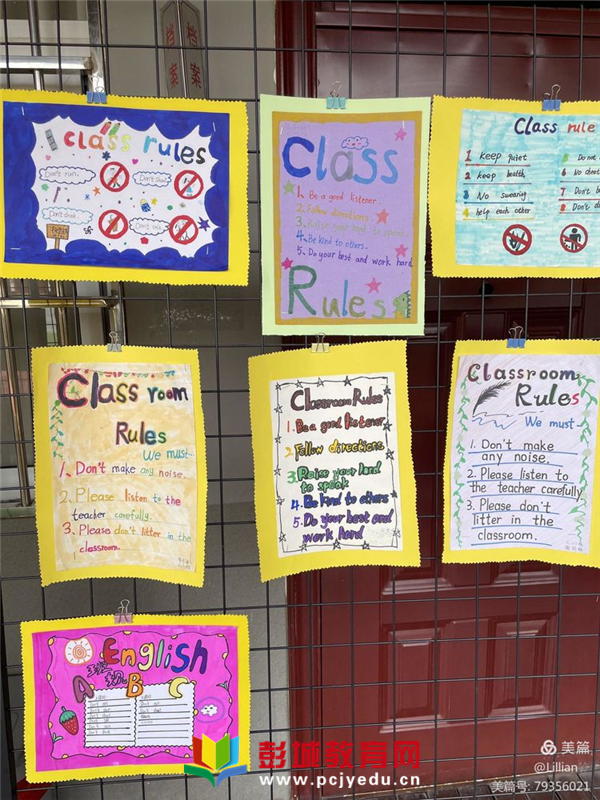 Class rules
Don't run.
Class
1. Be a good listener.
2. Follow directions.
3. Raise your hand to speak.
4. Be kind to others.
5. Do your best and work hard
Rules
Class rule
1 keep quiet
2 keep health
3 No swearing
4 help each other
5
6
7
8
Class room
Rules
We must...
1. Don't make any noise.
2. Please listen to the
teacher carefully.
3. Please don't litter in the
classroom.
Classroom Rules
1. Be a good listener
2. Follow directions
3. Raise your hand
to speak
4. Be kind to others
5. Do your best and
work hard
Classroom
Rules
We must...
1. Don't make
any noise.
2. Please listen to
the teacher carefully.
3. Please don't
litter in the
classroom.
English
A
B
彭城教育网
www.pcjyedu.cn
美篇
@Lillian
美篇号: 79356021